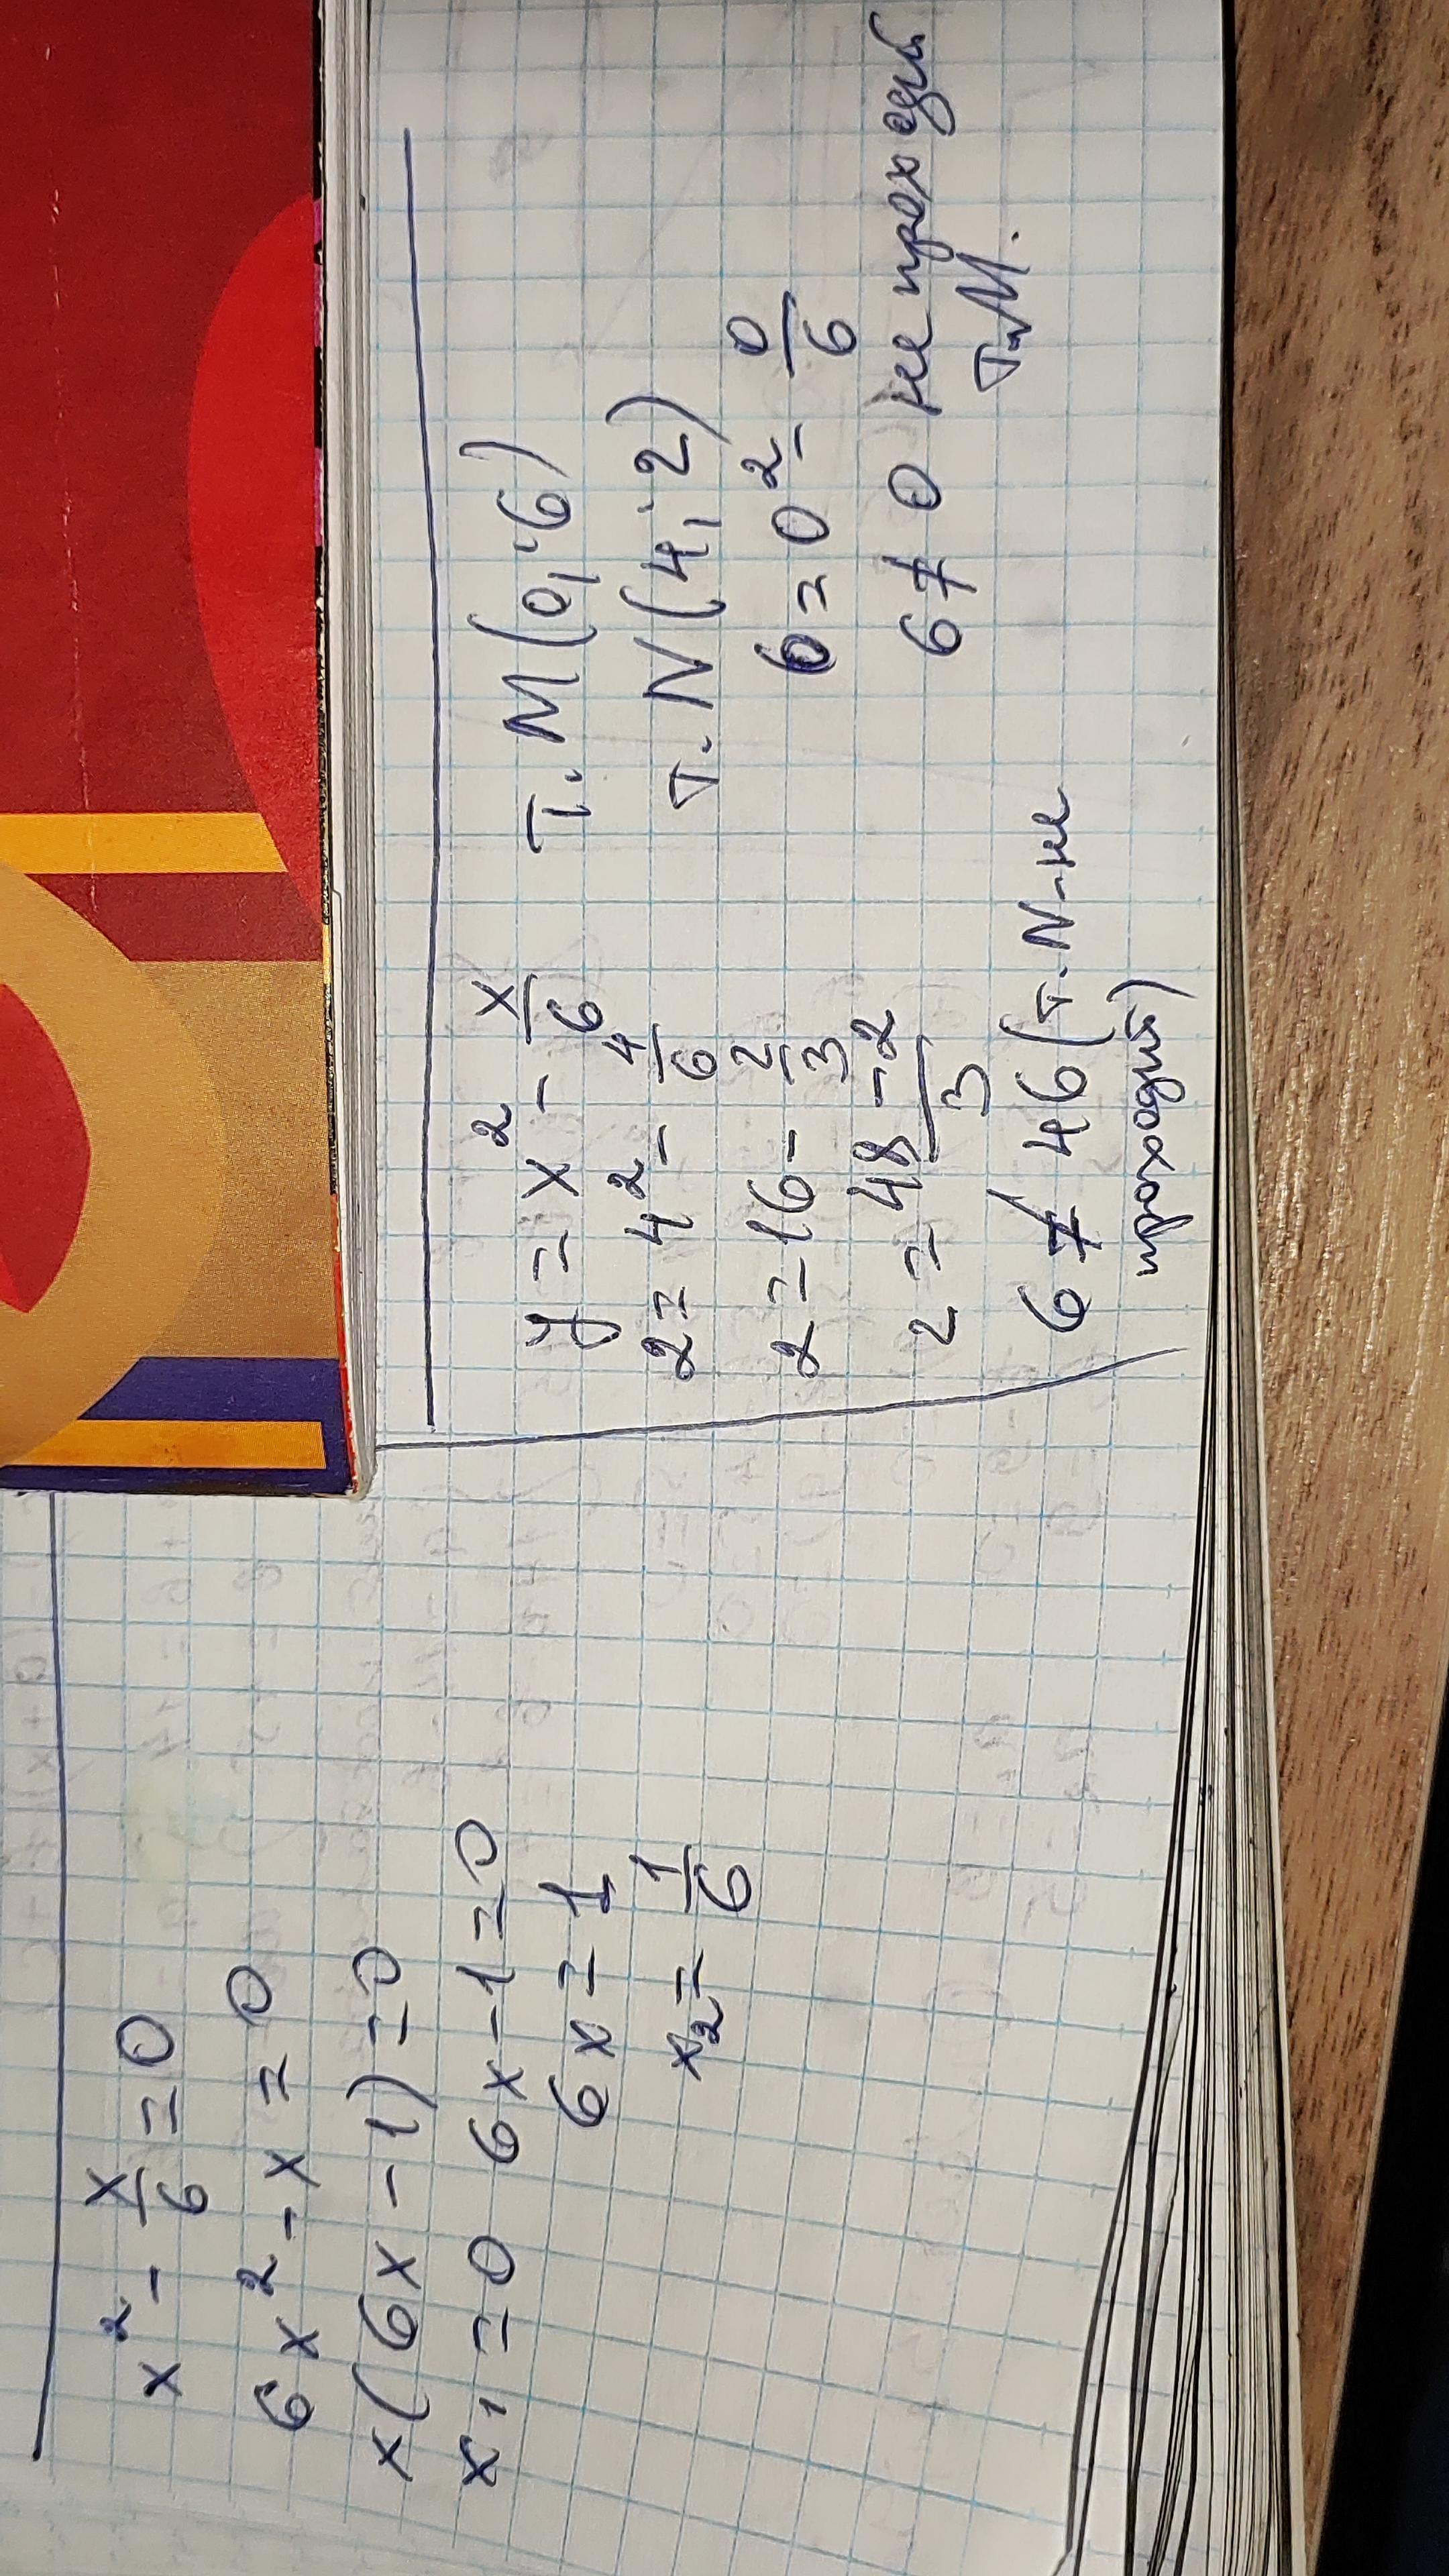 x² - x/6 = 0
6x² - x = 0
x(6x - 1) = 0
x₁ = 0 6x - 1 = 0
6x = 1
x₂ = 1/6
y = x² - x/6 т. M(0; 6)
2 = 4² - 4/6 т. N(4; 2)
2 = 16 - 2/3 6 = 0² - 0/6
2 = 48 - 2/3 6 ≠ 0 не проходит
т. M.
6 ≠ 46 (т. N - не
проходит)